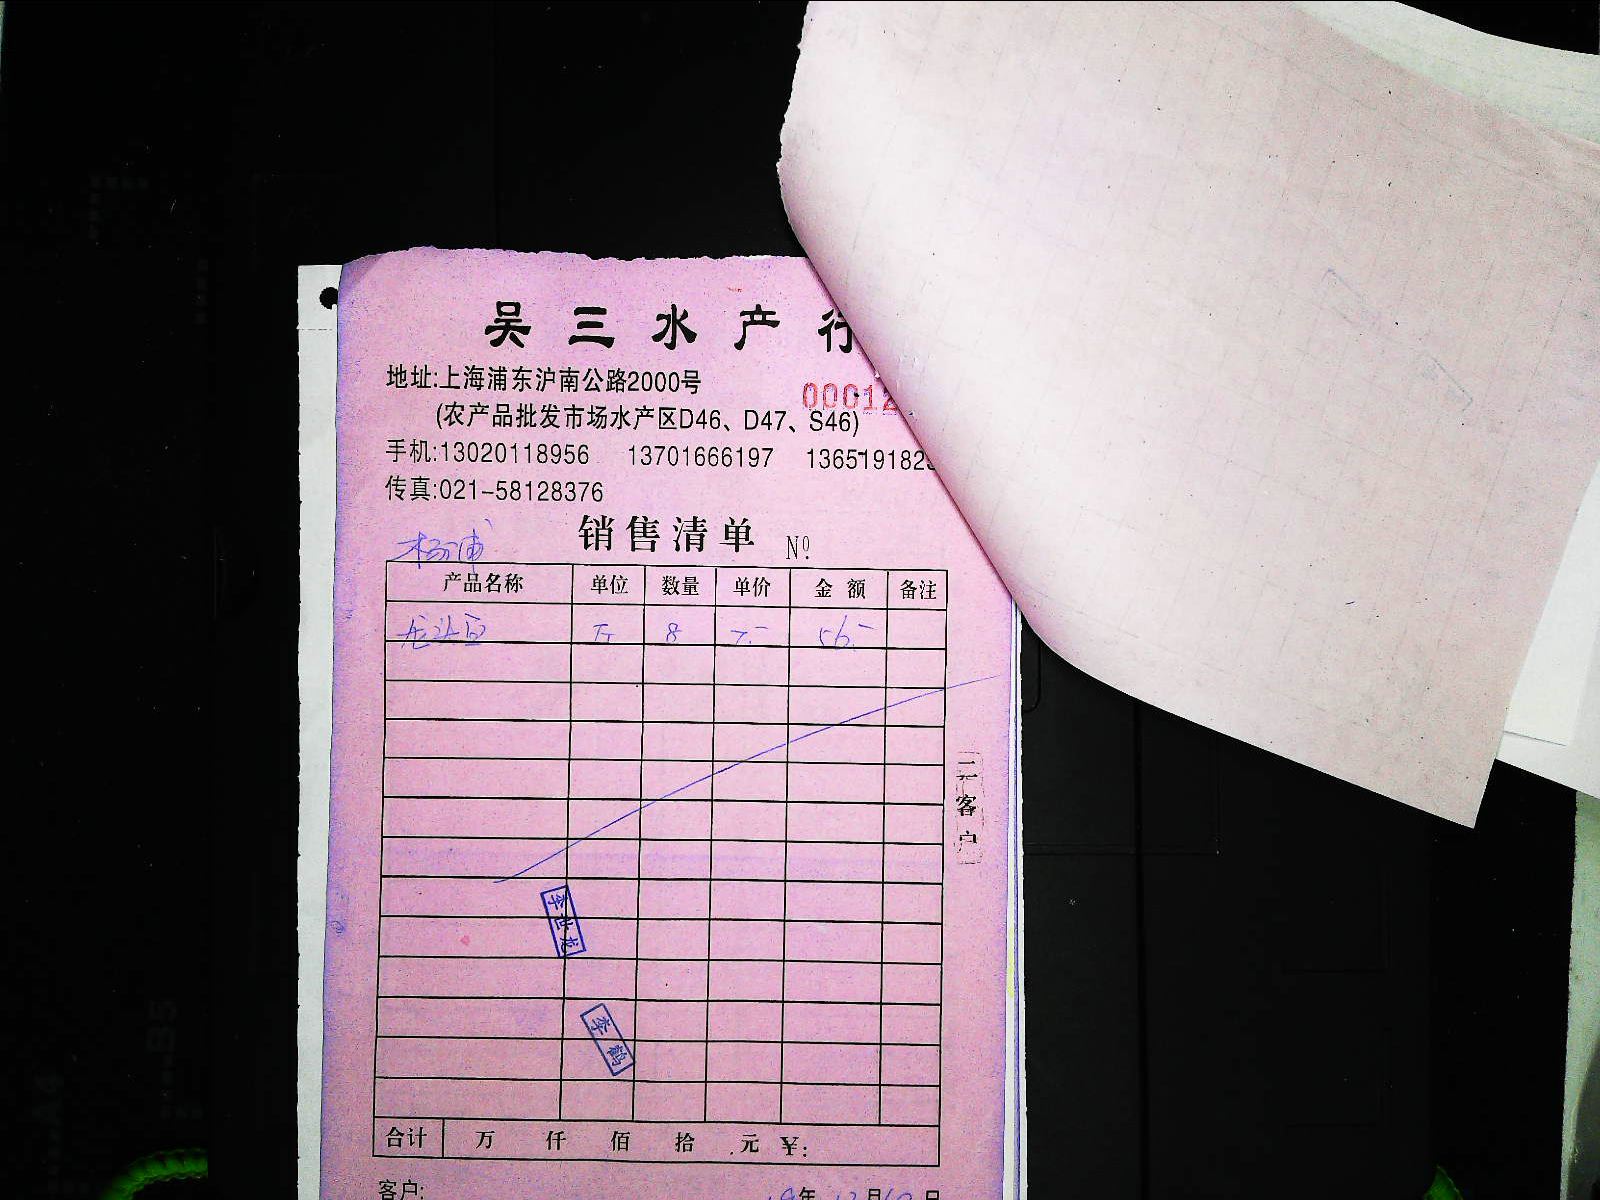 吴三水产行
地址:上海浦东沪南公路2000号
00012
(农产品批发市场水产区D46、D47、S46)
手机:13020118956 13701666197 1365191829
传真:021-58128376
销售清单 Nº
杨浦
产品名称 单位 数量 单价 金额 备注
龙头 斤 8 7.- 56.-
二 客户
李世龙
李鹤
合计 万 仟 佰 拾 元 ¥:
客户: 19年12月10日